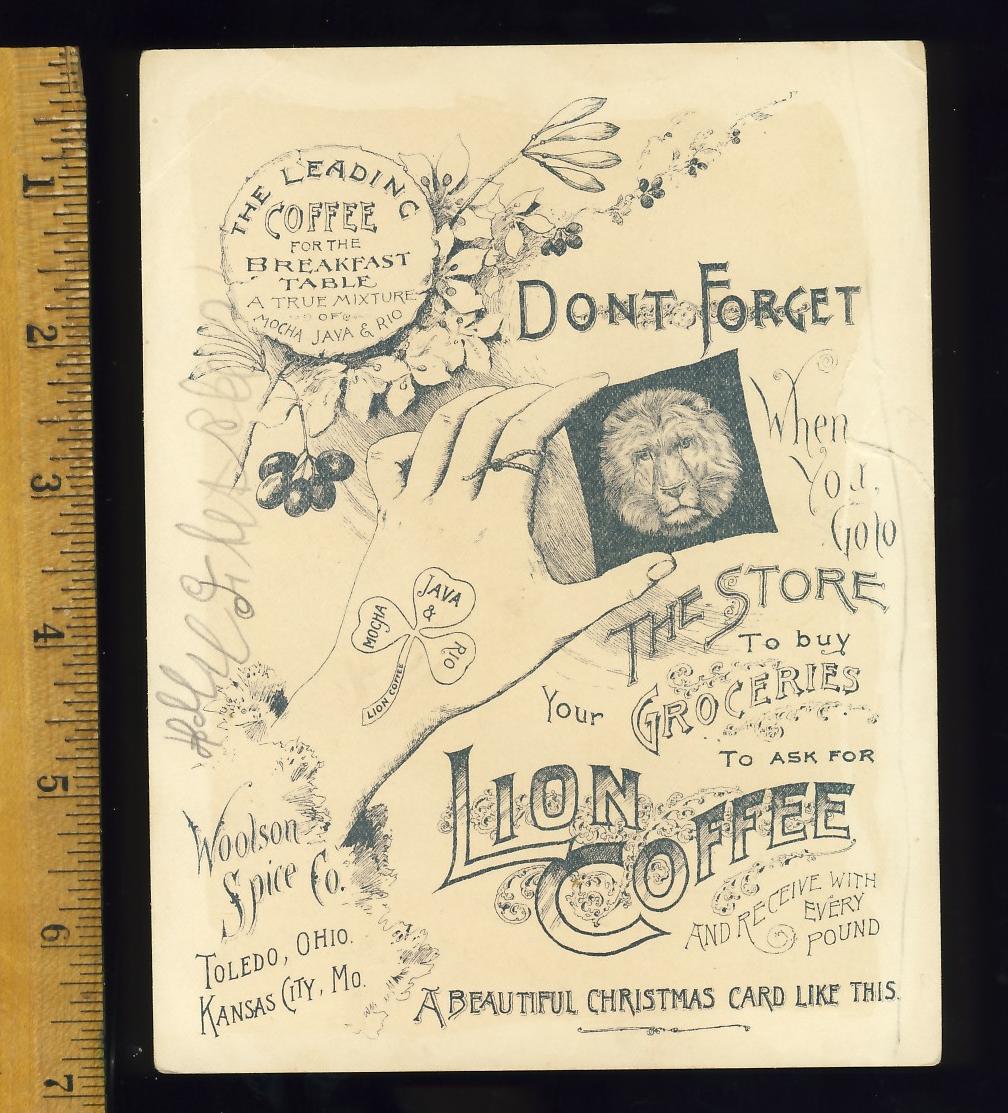 THE LEADING
COFFEE
FOR THE
BREAKFAST
TABLE
A TRUE MIXTURE
OF
MOCHA JAVA & RIO
DONT FORGET
When
You
Go to
THE STORE
To buy
Your GROCERIES
TO ASK FOR
LION
COFFEE
AND RECEIVE WITH
EVERY
POUND
A BEAUTIFUL CHRISTMAS CARD LIKE THIS.
MOCHA
JAVA
&
RIO
LION COFFEE
Woolson
Spice Co.
TOLEDO, OHIO.
KANSAS CITY, MO.
1
2
3
4
5
6
7